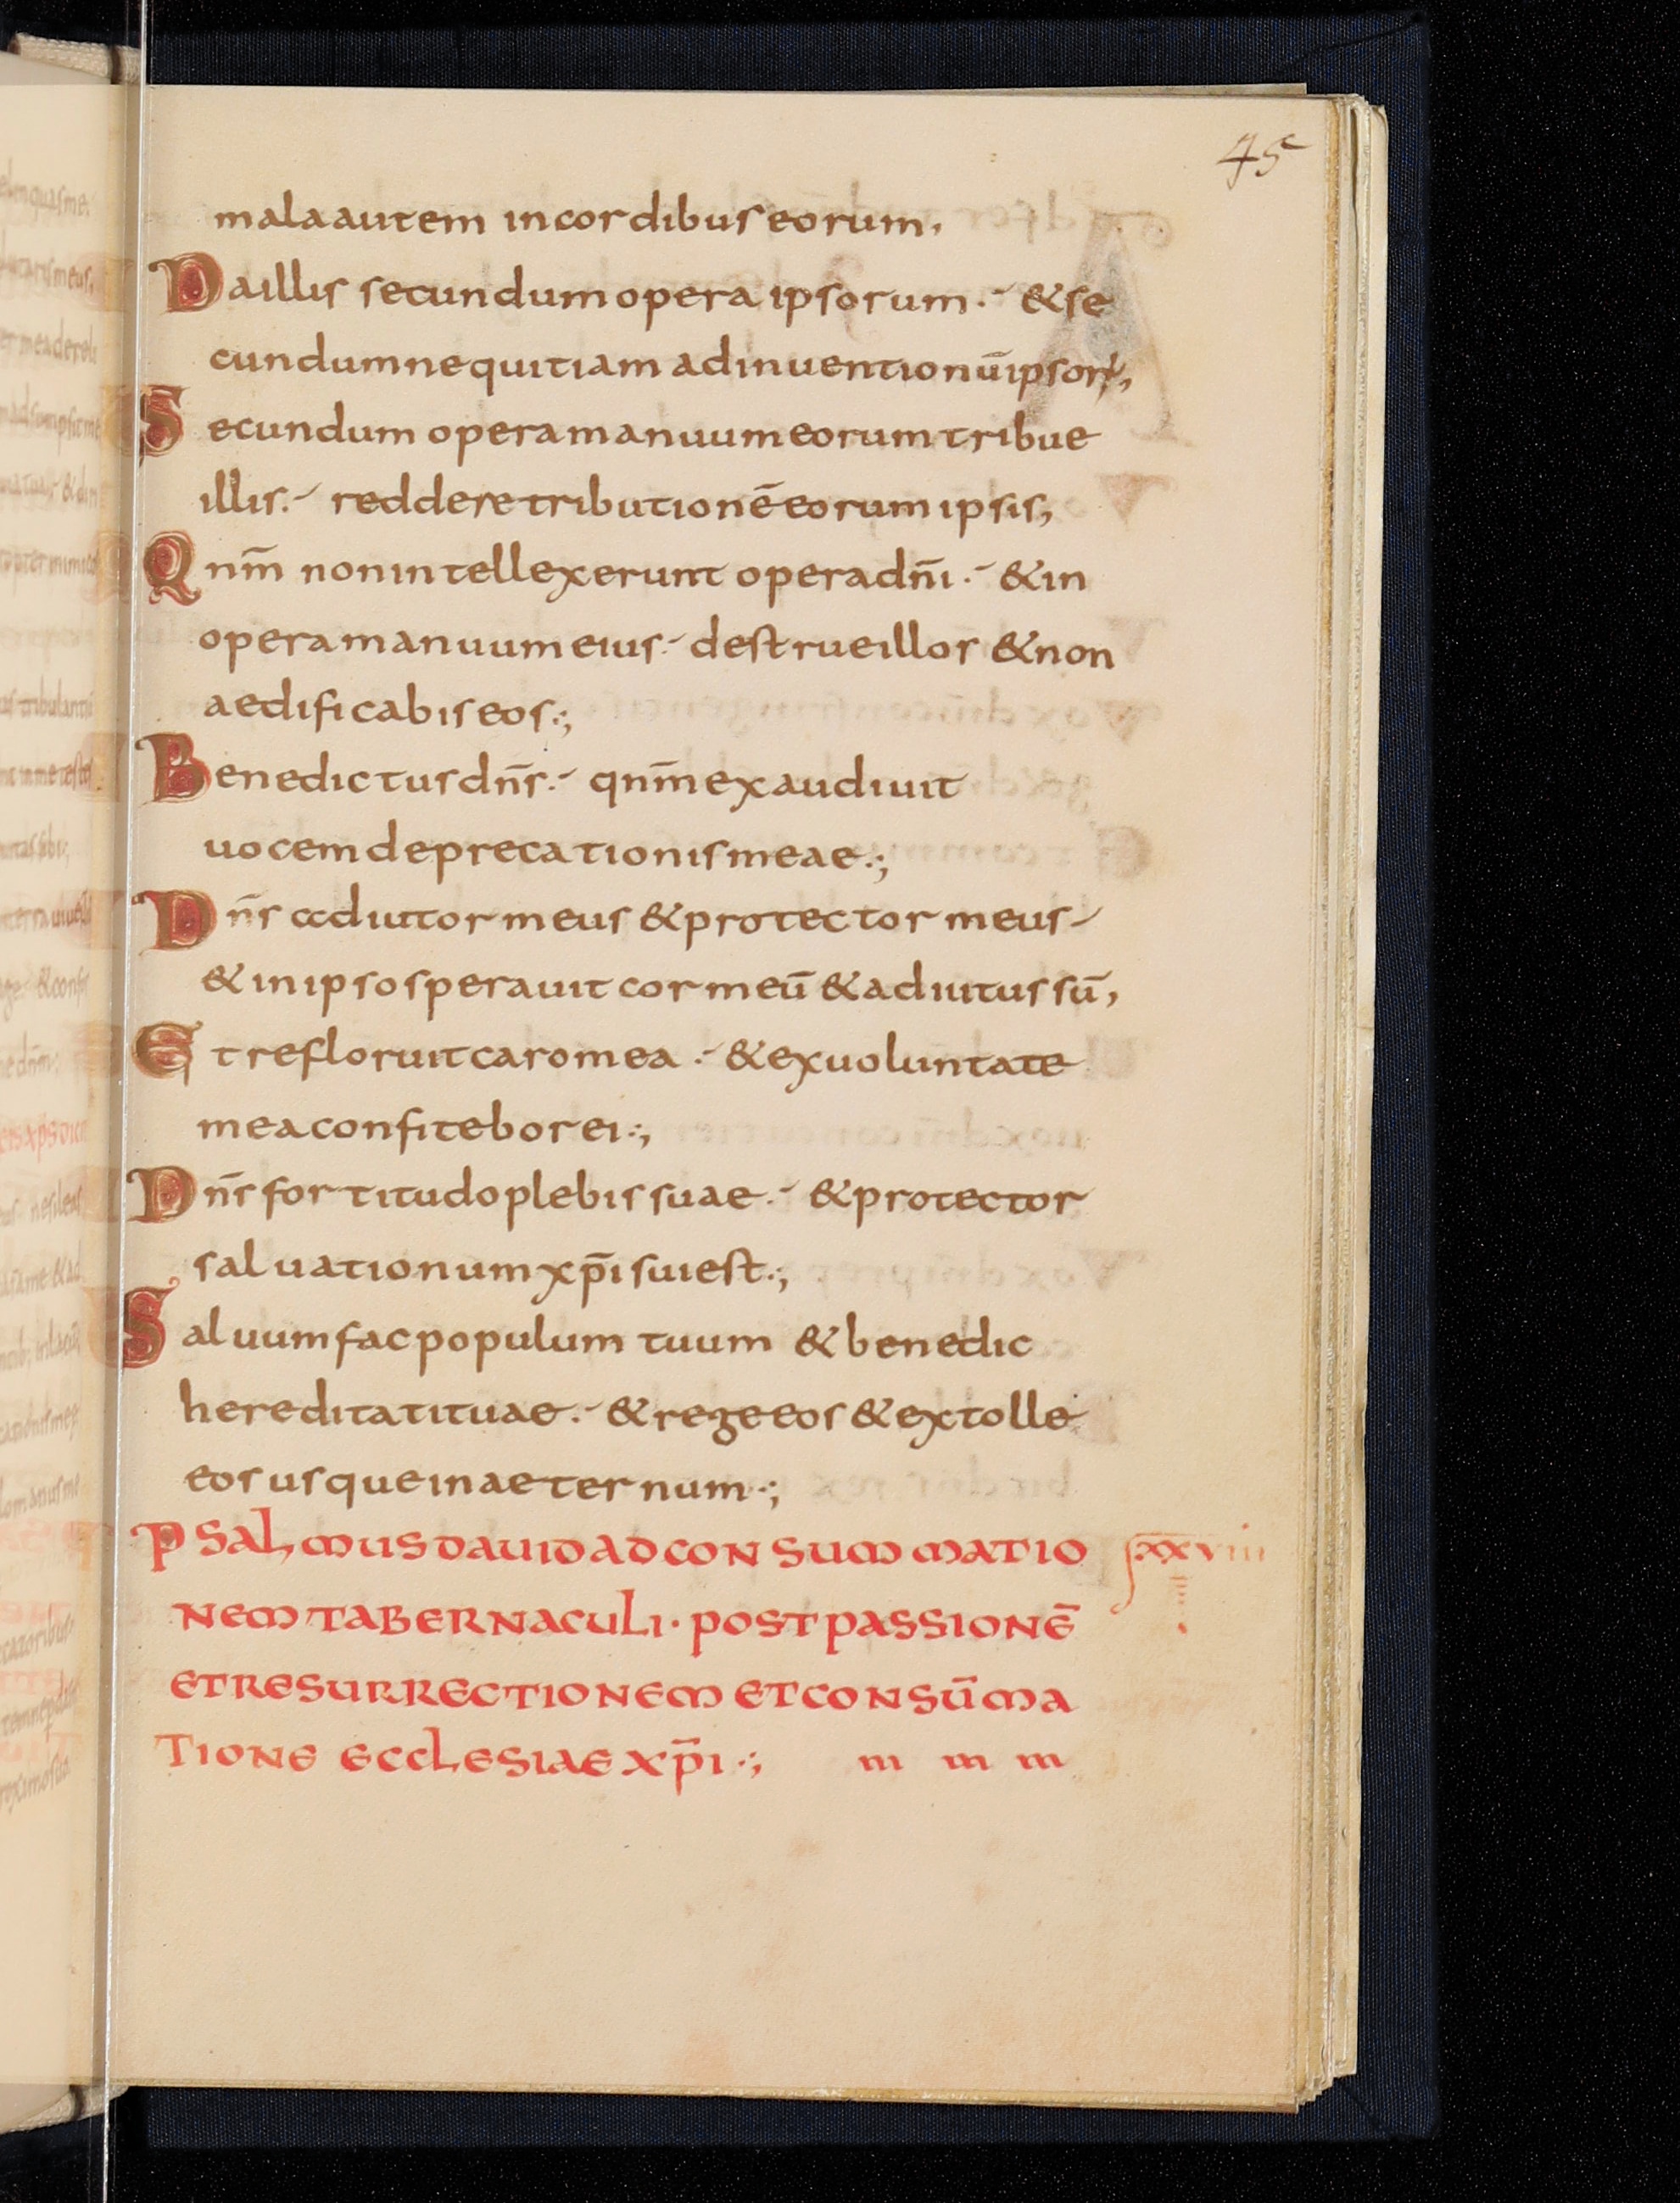 45
mala autem in cordibus eorum,
Da illis secundum opera ipsorum.- & se
cundum nequitiam adinuentionū ipsorꝝ,
Secundum opera manuum eorum tribue
illis.- redde retributionē eorum ipsis,
Qnm̄ non intellexerunt opera dn̄i.- & in
opera manuum eius.- destrue illos & non
aedificabis eos.;
Benedictus dn̄s.- qnm̄ exaudiuit
uocem deprecationis meae.;
Dn̄s adiutor meus & protector meus-
& in ipso sperauit cor meū & adiutus sū,
Et refloruit caro mea.- & ex uoluntate
mea confitebor ei.;
Dn̄s fortitudo plebis suae.- & protector
saluationum xp̄i sui est.;
Saluum fac populum tuum & benedic
hereditati tuae.- & rege eos & extolle
eos usque in aeternum.;
PSALMUS DAUID AD CONSUMMATIO xxviii
NEM TABERNACULI · POST PASSIONĒ
ET RESURRECTIONEM ET CONSŪMA
TIONE ECCLESIAE XP̄I.; m m m